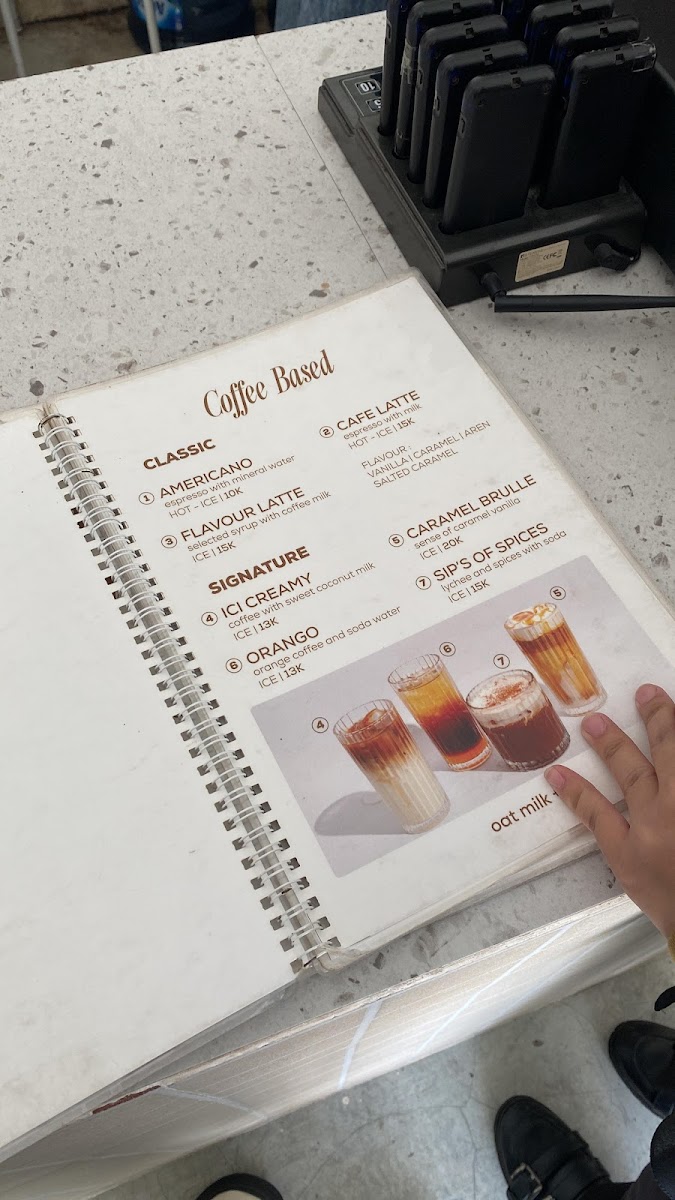 10
Coffee Based
CLASSIC
① AMERICANO
espresso with mineral water
HOT - ICE | 10K
② CAFE LATTE
espresso with milk
HOT - ICE | 15K
FLAVOUR :
VANILLA | CARAMEL | AREN
SALTED CARAMEL
③ FLAVOUR LATTE
selected syrup with coffee milk
ICE | 15K
SIGNATURE
④ ICI CREAMY
coffee with sweet coconut milk
ICE | 13K
⑤ CARAMEL BRULLE
sense of caramel vanilla
ICE | 20K
⑥ ORANGO
orange coffee and soda water
ICE | 13K
⑦ SIP'S OF SPICES
lychee and spices with soda
ICE | 15K
④
⑥
⑦
⑤
oat milk